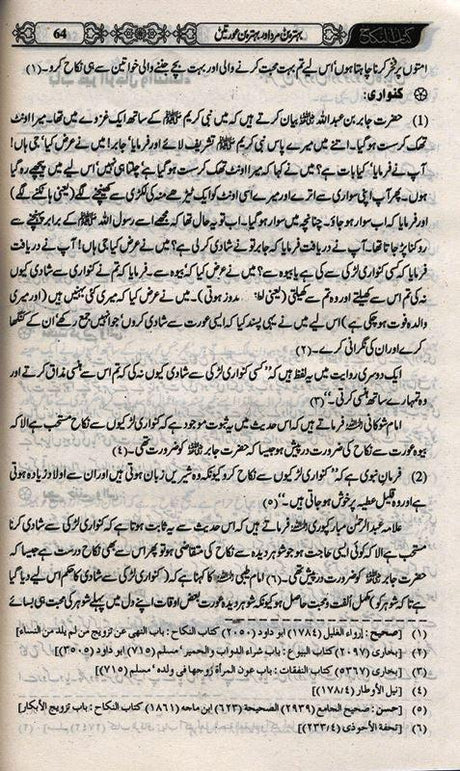 64 بہترین مرد اور بہترین عورتیں کتاب النکاح
امتوں پر فخر کرنا چاہتا ہوں‘ اس لیے تم بہت محبت کرنے والی اور بہت بچے جننے والی خواتین سے ہی نکاح کرو۔(۱)
کنواری:
(1) حضرت جابر بن عبداللہ رضی اللہ عنہ بیان کرتے ہیں کہ میں نبی کریم ﷺ کے ساتھ ایک غزوے میں تھا۔ میرا اونٹ
تھک کر ست ہو گیا۔ اتنے میں میرے پاس نبی کریم ﷺ تشریف لائے اور فرمایا‘ جابر! میں نے عرض کیا‘ جی ہاں!
آپ نے فرمایا‘ کیا بات ہے؟ میں نے کہا کہ میرا اونٹ تھک کر ست ہو گیا ہے‘ چلتا ہی نہیں‘ اس لیے میں پیچھے رہ گیا
ہوں۔ پھر آپ اپنی سواری سے اترے اور میرے اسی اونٹ کو ایک ٹیڑھے منہ کی لکڑی سے کھینچنے لگے (یعنی ہانکنے لگے)
اور فرمایا کہ اب سوار ہو جاؤ۔ چنانچہ میں سوار ہو گیا۔ اب تو یہ حال تھا کہ مجھے اسے رسول اللہ ﷺ کے برابر پہنچنے سے
روکنا پڑ جاتا تھا۔ آپ نے دریافت فرمایا کہ جابر تو نے شادی کر لی ہے؟ میں نے عرض کیا جی ہاں! آپ نے دریافت
فرمایا کہ کسی کنواری لڑکی سے کی ہے یا بیوہ سے؟ میں نے عرض کیا کہ بیوہ سے۔ فرمایا کہ تم نے کنواری سے شادی کیوں
نہ کی تم اس سے کھیلتے اور وہ تم سے کھیلتی (یعنی ہوتی)۔ میں نے عرض کیا کہ میری کئی بہنیں ہیں (اور میری
والدہ فوت ہو چکی ہے) اس لیے میں نے یہی پسند کیا کہ ایسی عورت سے شادی کروں‘ جو انہیں جمع رکھے‘ ان کے کنگھا
کرے اور ان کی نگرانی کرے۔(۲)
ایک دوسری روایت میں یہ لفظ ہیں کہ ”کسی کنواری لڑکی سے شادی کیوں نہ کی کہ تم اس سے ہنسی مذاق کرتے اور
وہ تمہارے ساتھ ہنسی کرتی۔“(۳)
امام شوکانی رحمہ اللہ فرماتے ہیں کہ اس حدیث میں یہ ثبوت موجود ہے کہ کنواری لڑکیوں سے نکاح مستحب ہے الا کہ
بیوہ عورت سے نکاح کی ضرورت درپیش ہو جیسا کہ حضرت جابر رضی اللہ عنہ کو ضرورت تھی۔(۴)
(2) فرمان نبوی ہے کہ ”کنواری لڑکیوں سے نکاح کرو کیونکہ وہ شیریں زبان ہوتی ہیں اور ان سے اولاد زیادہ ہوتی
ہے اور وہ قلیل عطیہ پر خوش ہو جاتی ہیں۔“(۵)
علامہ عبدالرحمٰن مبارکپوری رحمہ اللہ فرماتے ہیں کہ اس حدیث سے یہ ثابت ہوتا ہے کہ کنواری لڑکی سے شادی کرنا
مستحب ہے الا کہ کوئی ایسی حاجت ہو جو شوہر دیدہ سے نکاح کی متقاضی ہو تو پھر اس سے بھی نکاح درست ہے جیسا کہ
حضرت جابر رضی اللہ عنہ کو ضرورت درپیش تھی۔(۶) امام طیبی رحمہ اللہ کا کہنا ہے کہ (کنواری لڑکی سے شادی کا حکم اس لیے دیا گیا
ہے تاکہ شوہر کو) مکمل الفت و محبت حاصل ہو کیونکہ شوہر دیدہ عورت بعض اوقات اپنے دل میں پہلے شوہر کی محبت ہی بسائے
(۱) [صحیح : إرواء الغلیل (۱۷۸٤) ابو داود (۲۰۵۰) کتاب النکاح : باب النهی عن تزویج من لم یلد من النساء]
(۲) [بخاری (۲۰۹۷) کتاب البیوع : باب شراء الدواب والحمیر‘ مسلم (۷۱۵) ابو داود (۳۵۰۵)]
(۳) [بخاری (۵۳٦۷) کتاب النفقات : باب عون المرأة زوجها فی ولده‘ مسلم (۷۱۵)]
(٤) [نیل الأوطار (۱۷۸/٤)]
(۵) [حسن : صحیح الجامع (۲۹۳۹) الصحیحة (٦۲۳) ابن ماجه (۱۸٦۱) کتاب النکاح : باب تزویج الأبکار]
(٦) [تحفة الأحوذی (۲۳۳/٤)]